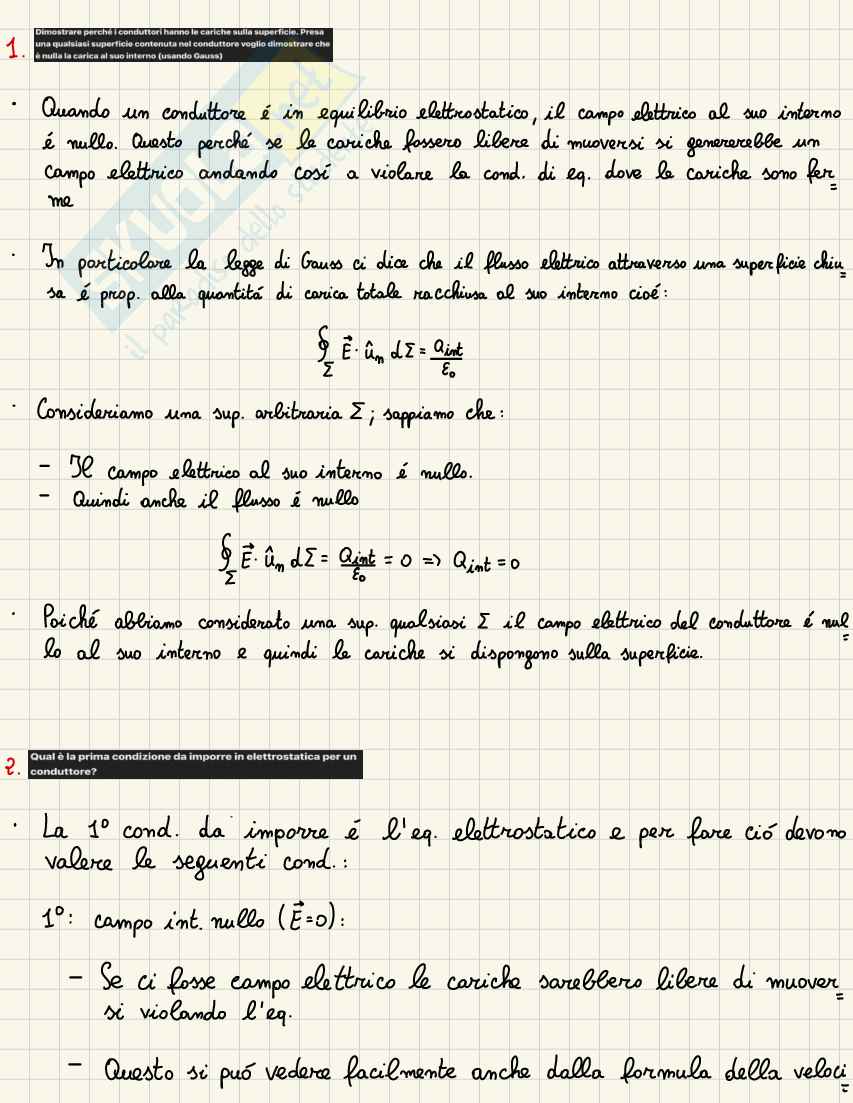 1. Dimostrare perché i conduttori hanno le cariche sulla superficie. Presa
una qualsiasi superficie contenuta nel conduttore voglio dimostrare che
è nulla la carica al suo interno (usando Gauss)
· Quando un conduttore é in equilibrio elettrostatico, il campo elettrico al suo interno
é nullo. Questo perché se le cariche fossero libere di muoversi si genererebbe un
campo elettrico andando cosí a violare la cond. di eq. dove le cariche sono fer
me
· In particolare la legge di Gauss ci dice che il flusso elettrico attraverso una superficie chiu
sa é prop. alla quantitá di carica totale racchiusa al suo interno cioé:
∮_Σ E⃗ · û_n dΣ = Q_int/ε_0
· Consideriamo una sup. arbitraria Σ; sappiamo che:
- Il campo elettrico al suo interno é nullo.
- Quindi anche il flusso é nullo
∮_Σ E⃗ · û_n dΣ = Q_int/ε_0 = 0 => Q_int = 0
· Poiché abbiamo considerato una sup. qualsiasi Σ il campo elettrico del conduttore é nul
lo al suo interno e quindi le cariche si dispongono sulla superficie.
2. Qual è la prima condizione da imporre in elettrostatica per un
conduttore?
· La 1° cond. da imporre é l'eq. elettrostatico e per fare ció devono
valere le seguenti cond.:
1°: campo int. nullo (E⃗=0):
- Se ci fosse campo elettrico le cariche sarebbero libere di muover
si violando l'eq.
- Questo si puó vedere facilmente anche dalla formula della veloci
SKUOLA.net
il paradiso dello studente